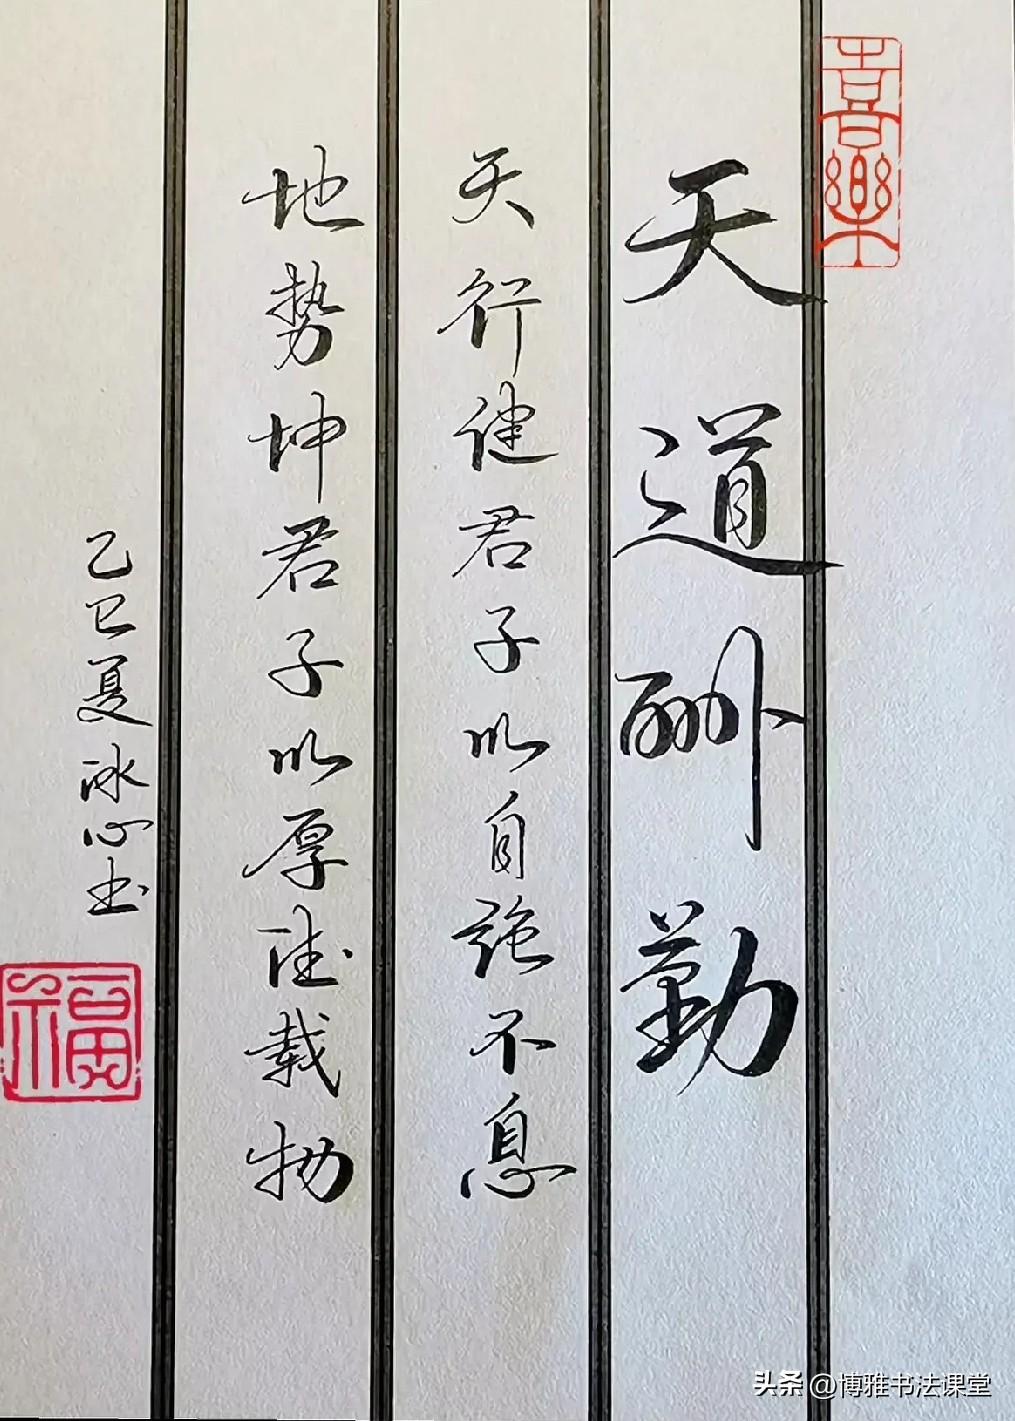 喜樂
天道酬勤
天行健君子以自强不息
地势坤君子以厚德载物
乙巳夏冰心书
福
头条 @博雅书法课堂